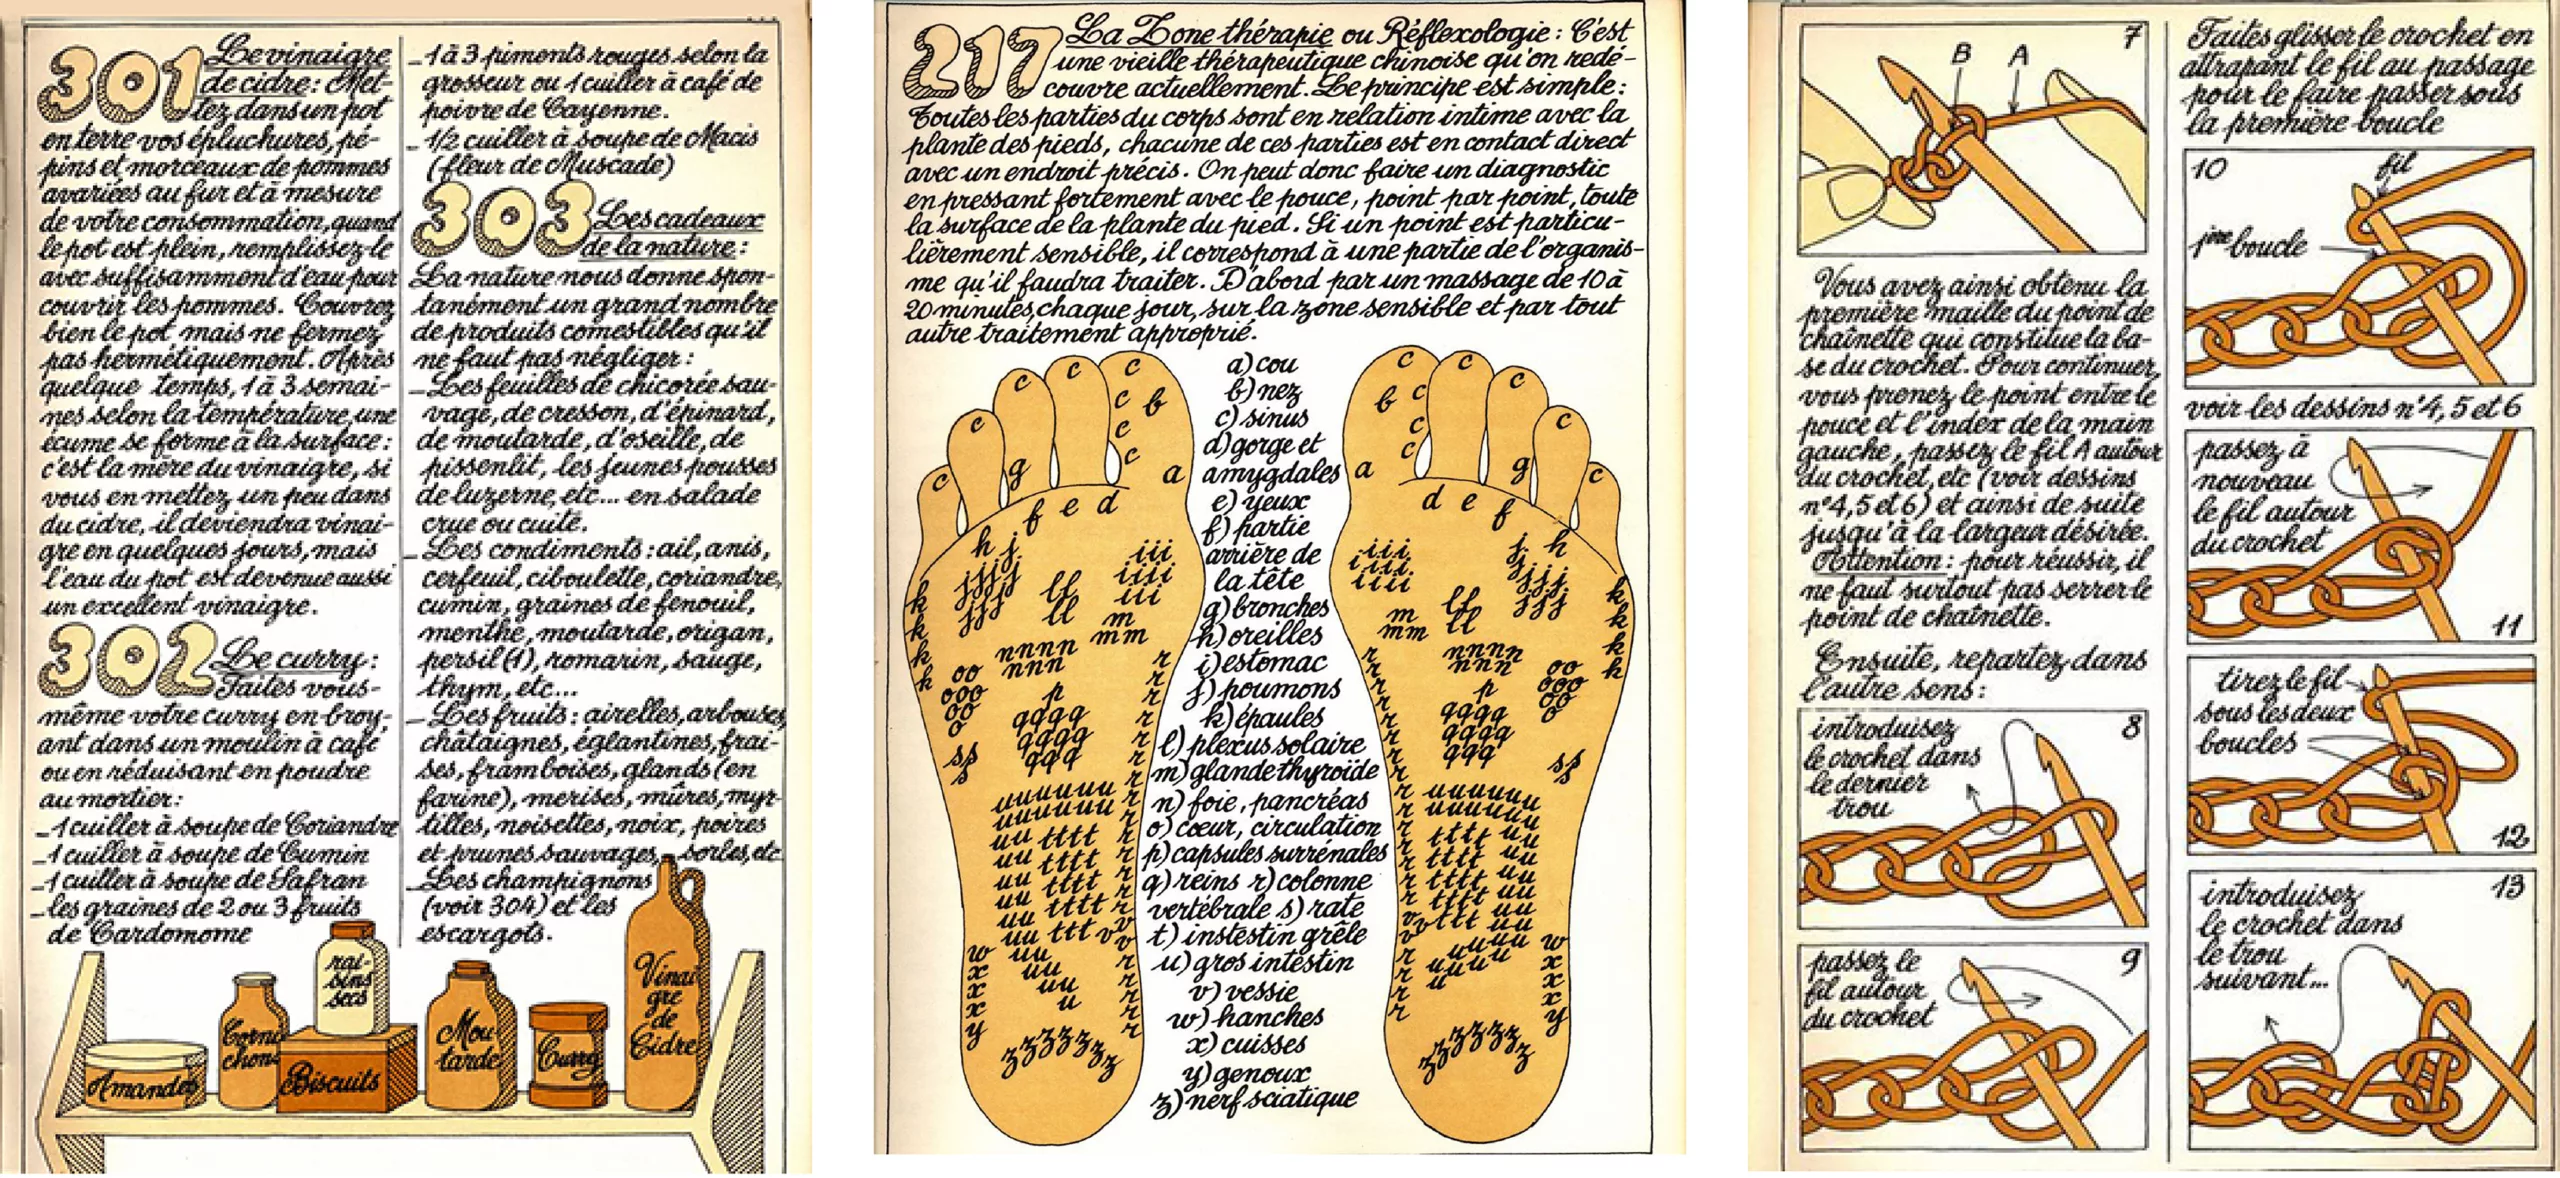 301 Le vinaigre
de cidre : Met-
tez dans un pot
en terre vos épluchures, pé-
pins et morceaux de pommes
avariées au fur et à mesure
de votre consommation, quand
le pot est plein, remplissez-le
avec suffisamment d'eau pour
couvrir les pommes. Couvrez
bien le pot mais ne fermez
pas hermétiquement. Après
quelque temps, 1 à 3 semai-
nes selon la température, une
écume se forme à la surface :
c'est la mère du vinaigre, si
vous en mettez un peu dans
du cidre, il deviendra vinai-
gre en quelques jours, mais
l'eau du pot est devenue aussi
un excellent vinaigre.
302 Le curry :
Faites vous-
même votre curry en broy-
ant dans un moulin à café
ou en réduisant en poudre
au mortier :
_ 1 cuiller à soupe de Coriandre
_ 1 cuiller à soupe de Cumin
_ 1 cuiller à soupe de Safran
_ les graines de 2 ou 3 fruits
de Cardomome
_ 1 à 3 piments rouges selon la
grosseur ou 1 cuiller à café de
poivre de Cayenne.
_ 1/2 cuiller à soupe de Macis
(fleur de Muscade)
303 Les cadeaux
de la nature :
La nature nous donne spon-
tanément un grand nombre
de produits comestibles qu'il
ne faut pas négliger :
_ Les feuilles de chicorée sau-
vage, de cresson, d'épinard,
de moutarde, d'oseille, de
pissenlit, les jeunes pousses
de luzerne, etc... en salade
crue ou cuite.
_ Les condiments : ail, anis,
cerfeuil, ciboulette, coriandre,
cumin, graines de fenouil,
menthe, moutarde, origan,
persil (1), romarin, sauge,
thym, etc...
_ Les fruits : airelles, arbouses,
châtaignes, églantines, frai-
ses, framboises, glands (en
farine), merises, mûres, myr-
tilles, noisettes, noix, poires
et prunes sauvages, sorbes, etc
_ Les champignons
(voir 304) et les
escargots.
Amandes
Corni
chons
rai-
sins
secs
Biscuits
Mou-
tarde
Curry
Vinai
gre
de
Cidre
217 La Zone thérapie ou Réflexologie : C'est
une vieille thérapeutique chinoise qu'on redé-
couvre actuellement. Le principe est simple :
Toutes les parties du corps sont en relation intime avec la
plante des pieds, chacune de ces parties est en contact direct
avec un endroit précis. On peut donc faire un diagnostic
en pressant fortement avec le pouce, point par point, toute
la surface de la plante du pied. Si un point est particu-
lièrement sensible, il correspond à une partie de l'organis-
me qu'il faudra traiter. D'abord par un massage de 10 à
20 minutes, chaque jour, sur la zone sensible et par tout
autre traitement approprié.
a) cou
b) nez
c) sinus
d) gorge et
amygdales
e) yeux
f) partie
arrière de
la tête
g) bronches
h) oreilles
i) estomac
j) poumons
k) épaules
l) plexus solaire
m) glande thyroïde
n) foie, pancréas
o) cœur, circulation
p) capsules surrénales
q) reins r) colonne
vertébrale s) rate
t) instestin grêle
u) gros intestin
v) vessie
w) hanches
x) cuisses
y) genoux
z) nerf sciatique
7
B A
Vous avez ainsi obtenu la
première maille du point de
chaînette qui constitue la ba-
se du crochet. Pour continuer,
vous prenez le point entre le
pouce et l'index de la main
gauche, passez le fil A autour
du crochet, etc (voir dessins
n°4, 5 et 6) et ainsi de suite
jusqu'à la largeur désirée.
Attention : pour réussir, il
ne faut surtout pas serrer le
point de chaînette.
Ensuite, repartez dans
l'autre sens :
introduisez 8
le crochet dans
le dernier
trou
passez le 9
fil autour
du crochet
Faites glisser le crochet en
attrapant le fil au passage
pour le faire passer sous
la première boucle
10 fil
1ère boucle
voir les dessins n°4, 5 et 6
passez à
nouveau
le fil autour
du crochet
11
tirez le fil
sous les deux
boucles
12
introduisez 13
le crochet dans
le trou
suivant...